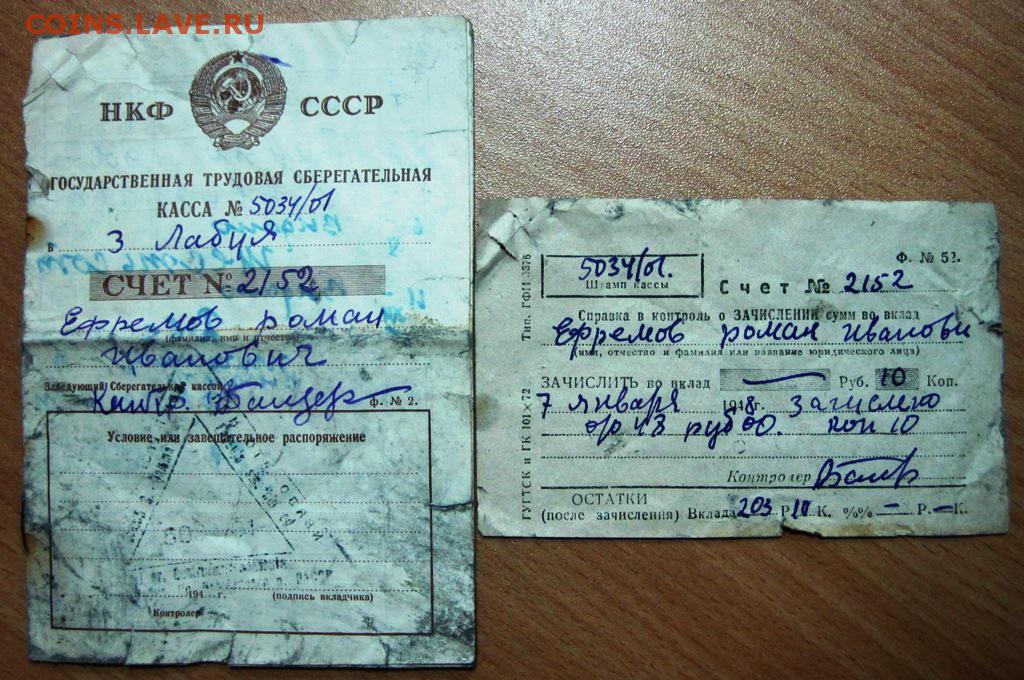 COINS.LAVE.RU
НКФ СССР
ГОСУДАРСТВЕННАЯ ТРУДОВАЯ СБЕРЕГАТЕЛЬНАЯ
КАССА № 5034/01
в З Лабуя
СЧЕТ № 2152
Ефремов роман
(фамилия, имя и отчество)
Иванович
Заведующий Сберегательной кассой
Контр.
ф. № 2.
Условие или завещательное распоряжение
194 г. (подпись вкладчика)
Контролер
Тип. ГФИ 3376
ГУГТСК и ГК 101×72
Ф. № 52.
5034/01.
Штамп кассы
Счет № 2152
Справка в контроль о ЗАЧИСЛЕНИИ сумм во вклад
Ефремов роман Иванови
(имя, отчество и фамилия или название юридического лица)
ЗАЧИСЛИТЬ во вклад — Руб. 10 Коп.
7 января 1948г. зачислено
43 руб 00. коп 10
Контролер
ОСТАТКИ
(после зачисления) Вклада 203 Р. 10 К. %% — Р. — К.